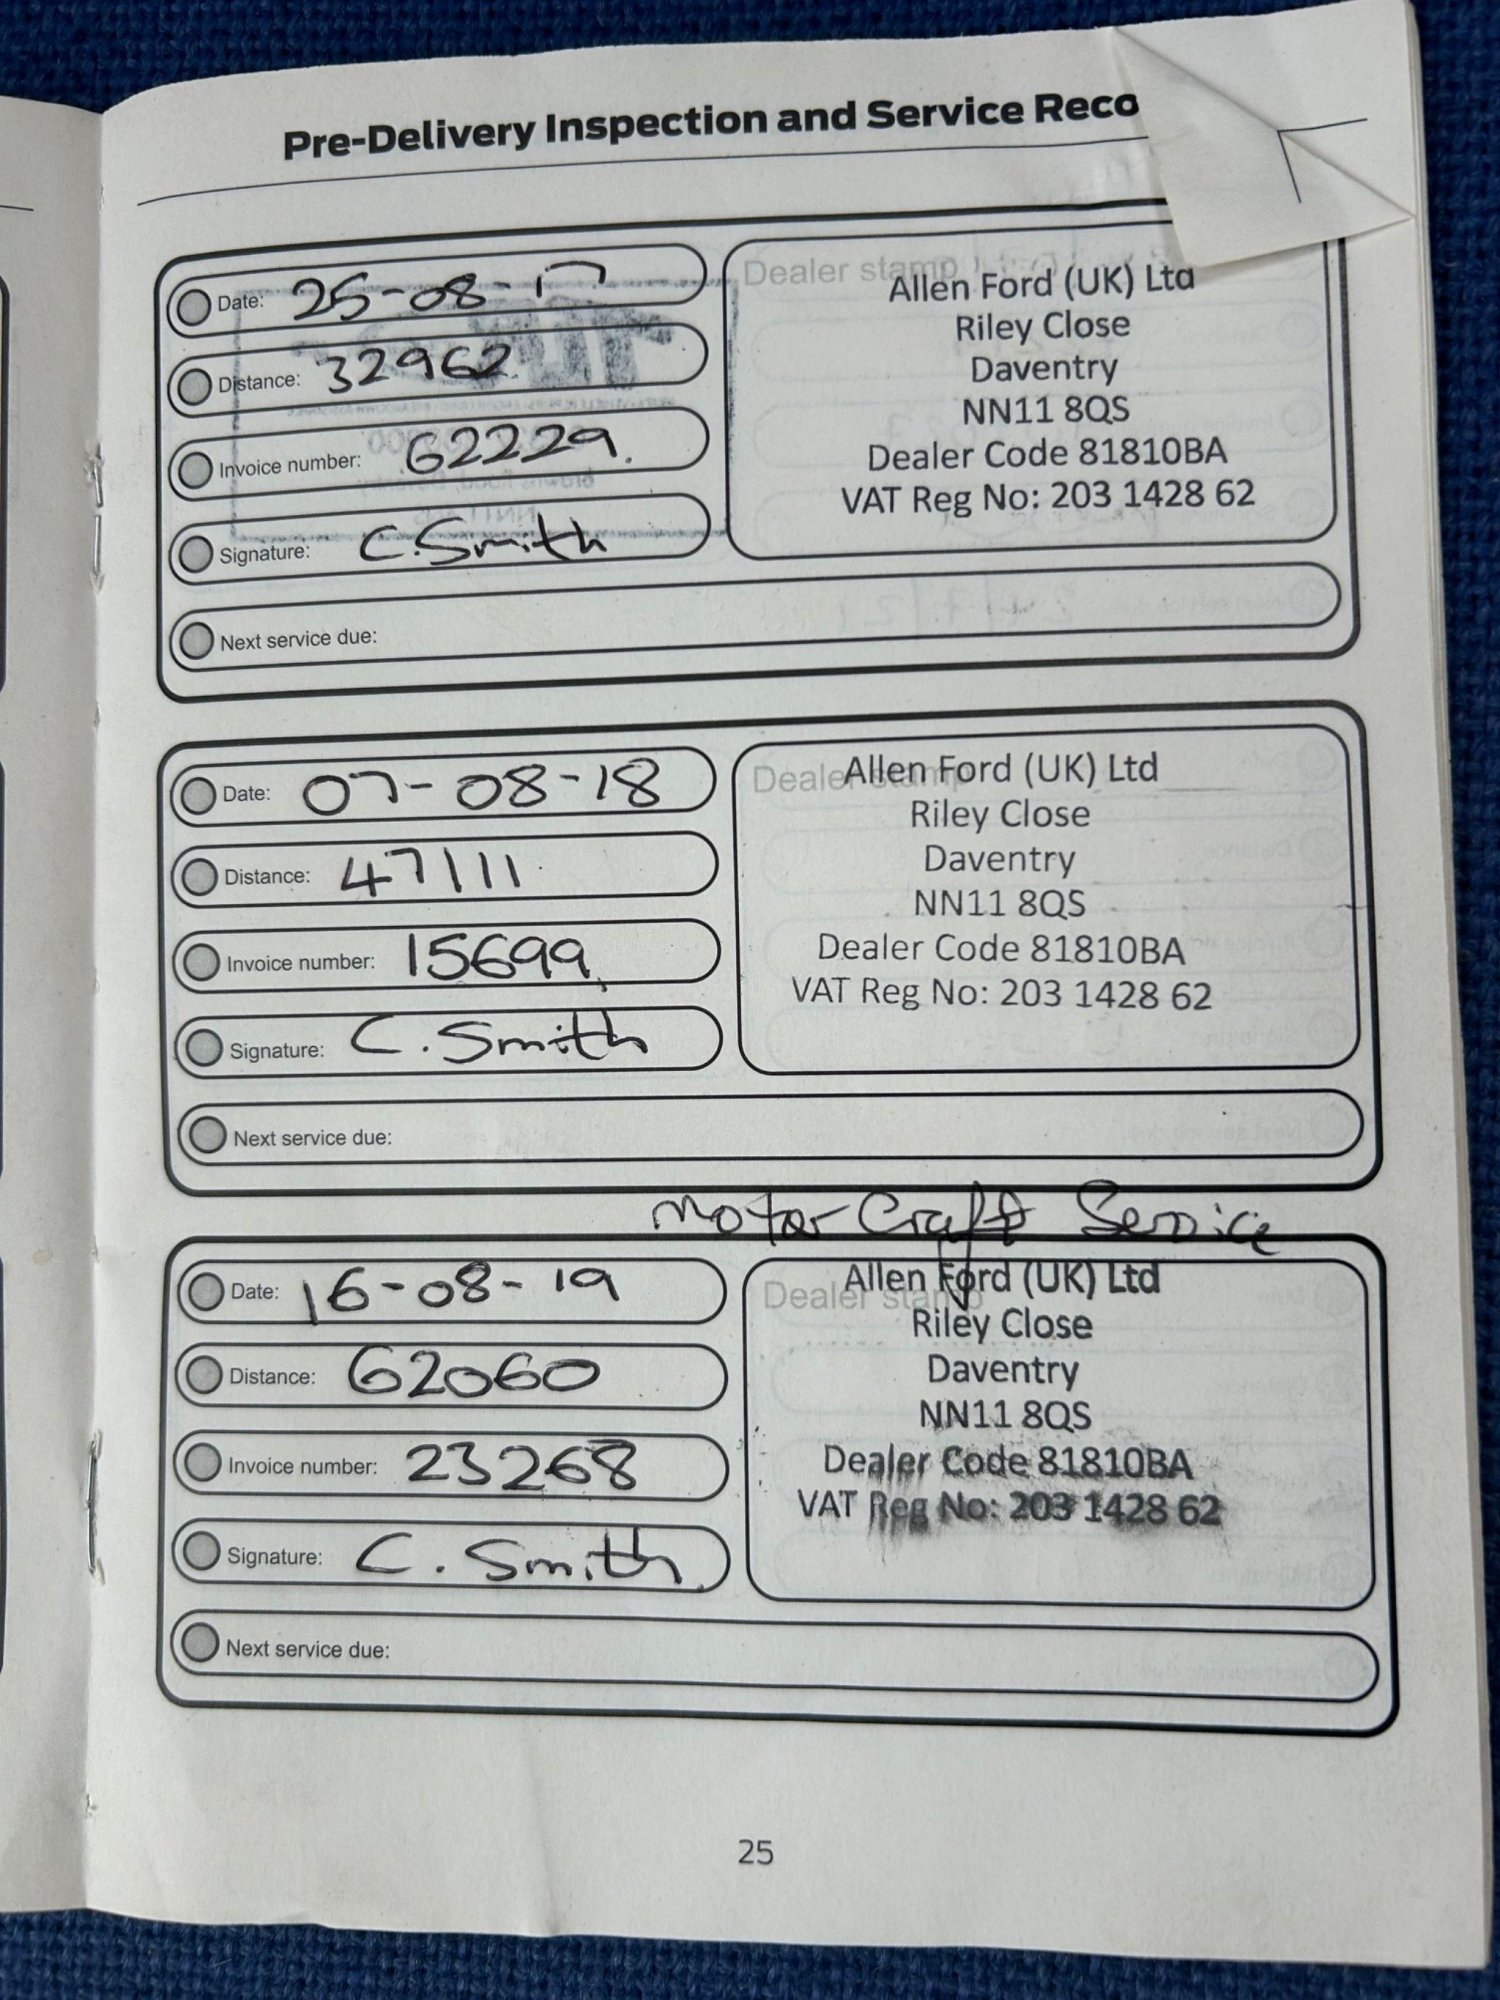 Pre-Delivery Inspection and Service Reco
Date: 25-08-17
Dealer stamp
Allen Ford (UK) Ltd
Riley Close
Distance: 32962
Daventry
NN11 8QS
Invoice number: 62229.
Dealer Code 81810BA
VAT Reg No: 203 1428 62
Signature: C. Smith
Next service due:
Date: 07-08-18
Dealer stamp
Allen Ford (UK) Ltd
Riley Close
Distance: 47111
Daventry
NN11 8QS
Invoice number: 15699
Dealer Code 81810BA
VAT Reg No: 203 1428 62
Signature: C. Smith
Next service due:
Motor Craft Service
Date: 16-08-19
Dealer stamp
Allen Ford (UK) Ltd
Riley Close
Distance: 62060
Daventry
NN11 8QS
Invoice number: 23268
Dealer Code 81810BA
VAT Reg No: 203 1428 62
Signature: C. Smith
Next service due:
25